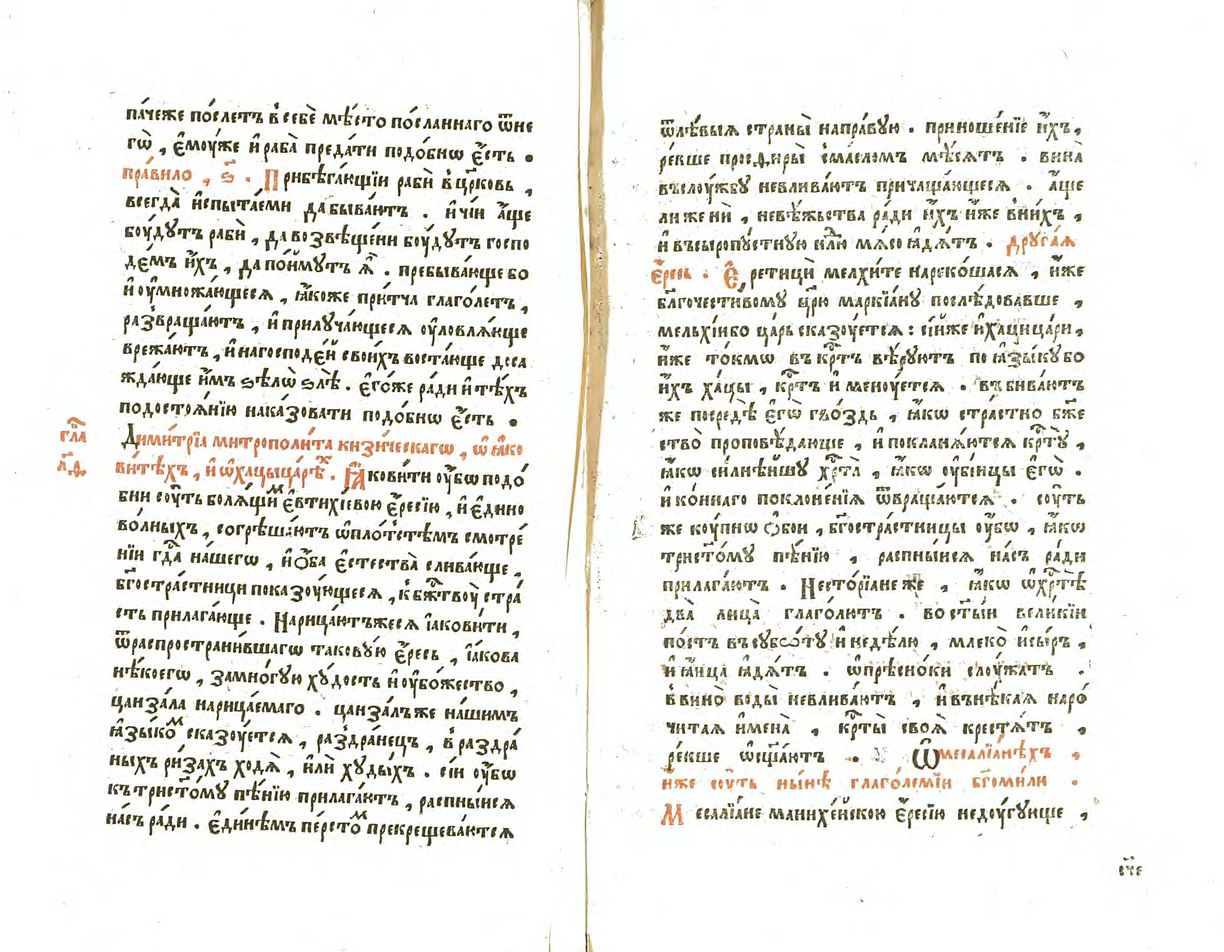 па́чеже по́слетъ в̾себѐ мѣ́сто по́сланнаго ѿне
гѡ̀ , є҆моу́же и҆раба̀ преда́ти подо́бнѡ є҆́сть .
пра́вило , ѕ҃ . Прибѣга́ющїи рабѝ в̾цр҃ковь ,
всегда̀ и҆спыта́еми да быва́ютъ . и҆ чїѝ а҆́ще
боу́дутъ рабѝ , да возвѣще́ни боу́дутъ госпо
де́мъ и҆́хъ , да по́ймутъ ѧ҆̀ . пребыва́юще бо
и҆ оу҆множа́ющеесѧ , ꙗ҆́коже при́тча глаго́летъ ,
развраща́ютъ , и҆ прилуча́ющеесѧ оу҆ловлѧ́юще
врежа́ютъ , и҆ на господе́й свои́хъ воста́юще доса
жда́юще и҆̀мъ ѕѣлѡ̀ ѕлѣ̀ . є҆гѡ́же ради и҆ тѣ́хъ
по досто́ѧнїю нака́зовати подо́бнѡ є҆́сть .
гла
л҃ѳ
Дими́трїа митрополи́та кизи́ческагѡ , ѡ҆ ꙗ҆ко
ви́тѣхъ , и҆ ѡ҆ хацыца́рѣхъ . Ꙗ҆кови́ти оу҆́бѡ подо́
бни соу́ть болѧ́щимъ є҆втихі́евою є҆́ресїю , и҆ є҆дино
во́лныхъ , согрѣша́ютъ ѡ҆ пло́тстѣмъ смотре́
нїи гд҇а на́шегѡ , и҆ ѻ҆́ба є҆стества̀ слива́юще ,
бг҃остра́стници показоу́ющеесѧ , к̾ бж҇твоу̀ стра́
сть прилага́юще . Нарица́ютъжеесѧ і҆акови́ти ,
ѿ распространи́вшагѡ такову́ю є҆́ресь , і҆а́кова
нѣ́коегѡ , за мно́гую ху́дость и҆ оу҆бо́жество ,
цанза́ла нарица́емаго . цанза́лъже на́шимъ
ꙗ҆зы́комъ сказоу́етсѧ , раздра́нецъ , в̾ раздра́
ныхъ ри́захъ ходѧ̀ , и҆лѝ худы́хъ . сїѝ оу҆́бѡ
къ трист҃о́му пѣ́нїю прилага́ютъ , распны́исѧ
на́съ ра́ди . Є҆ди́нѣмъ пе́рстомъ прекреща́ваютсѧ
ѿ лѣ́выѧ страны̀ на пра́вую . приноше́нїе и҆́хъ ,
ре́кше просфиры̀ с̾ ма́сломъ мѣ́сѧтъ . вина̀
въ слоу́жбу не влива́ютъ причаща́ющеесѧ . а҆́ще
ли же нѝ , невѣ́жьства ра́ди и҆́хъ и҆́же в̾ ни́хъ ,
и҆ въ сыропу́стную нд҇лю мѧ́со ꙗ҆дѧ́тъ . друга́ѧ
є҆́ресь . Є҆ретицѝ мелхи́те нареко́шасѧ , и҆́же
благочести́вому цр҃ю маркїа́ну послѣ́довавше ,
мелъхі́и бо ца́рь сказоу́етсѧ : сїи́же и҆ хацица́ри ,
и҆́же то́кмѡ въ кр҇тъ вѣ́руютъ по ꙗ҆зы́ку бо
и҆́хъ ха́цы , кр҇тъ и҆менꙋ́етсѧ . въ бива́ютъ
же посредѣ̀ є҆гѡ̀ гво́здь , ꙗ҆́кѡ стра́стно бж҃е
ство̀ проповѣ́дающе , и҆ покланѧ́ютсѧ кр҇ту̀ ,
ꙗ҆́кѡ си́лнѣйшу хр҇та̀ , ꙗ҆́кѡ оу҆бі́йцы є҆гѡ̀ .
и҆ ко́ннаго поклоне́нїѧ ѿвраща́ютсѧ . соу́ть
же коу́пнѡ ѻ҆бо́и , бг҃остра́стницы оу҆́бѡ , ꙗ҆́кѡ
трист҃о́му пѣ́нїю , распны́исѧ на́съ ра́ди
прилага́ютъ . Несторїа́не же , ꙗ҆́кѡ ѡ҆ хр҇тѣ̀
два̀ лица̀ глаго́лютъ . во ст҃ы́и вели́кїи
по́стъ въ субѡ́ту и҆ недѣ́лю , млеко̀ и҆ сы́ръ ,
и҆ ꙗ҆́ица ꙗ҆дѧ́тъ . ѡ҆прѣ́сноки слоу́жатъ .
в̾ вино̀ воды̀ не влива́ютъ , и҆ въ нѣ́каѧ наро
чи́таѧ и҆мена̀ , кр҇ты̀ своѧ̀ кре́стѧтъ .
ре́кше ѡ҆сщ҃а́ютъ . Ѡ҆ месалїа́нѣхъ ,
и҆́же соу́ть ны́нѣ глаго́лемїи бг҃оми́ли .
Месалїа́не манихе́йскою є҆́ресїю недоу́гующе ,